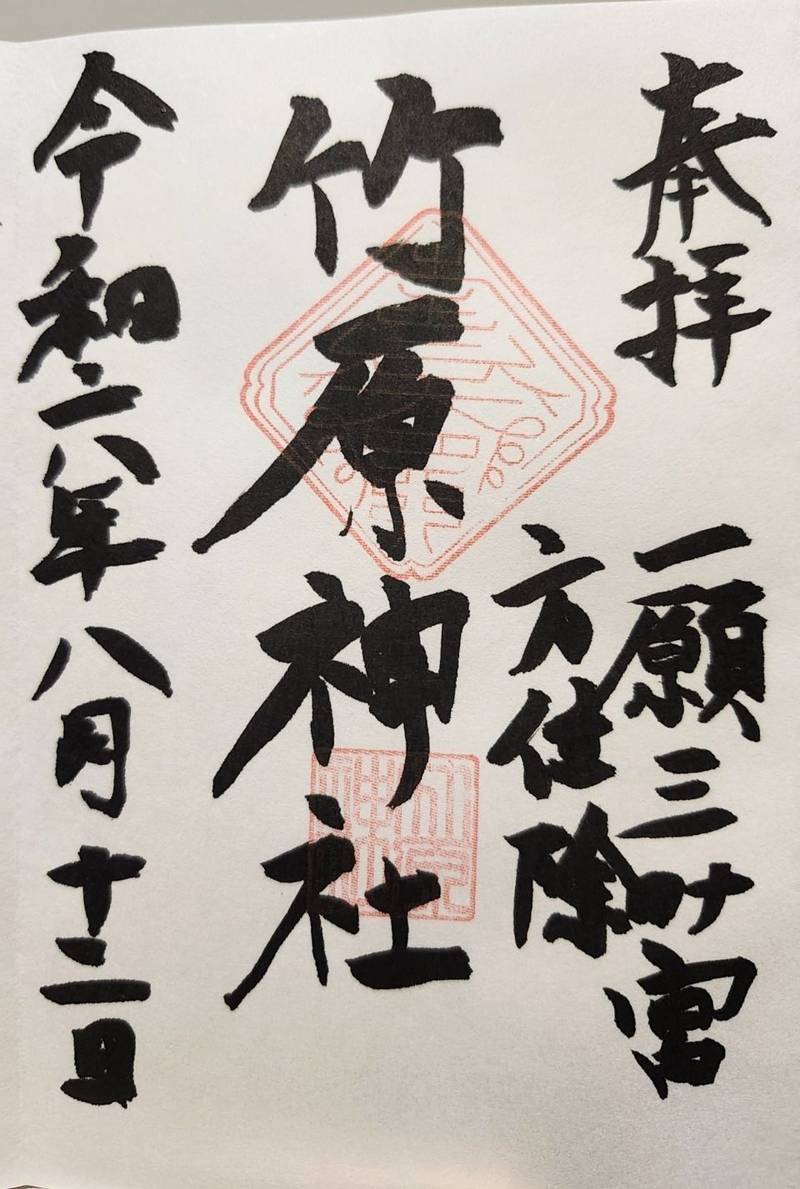 奉拝
一願三叶宮
方位除
竹原神社
令和六年八月十二日